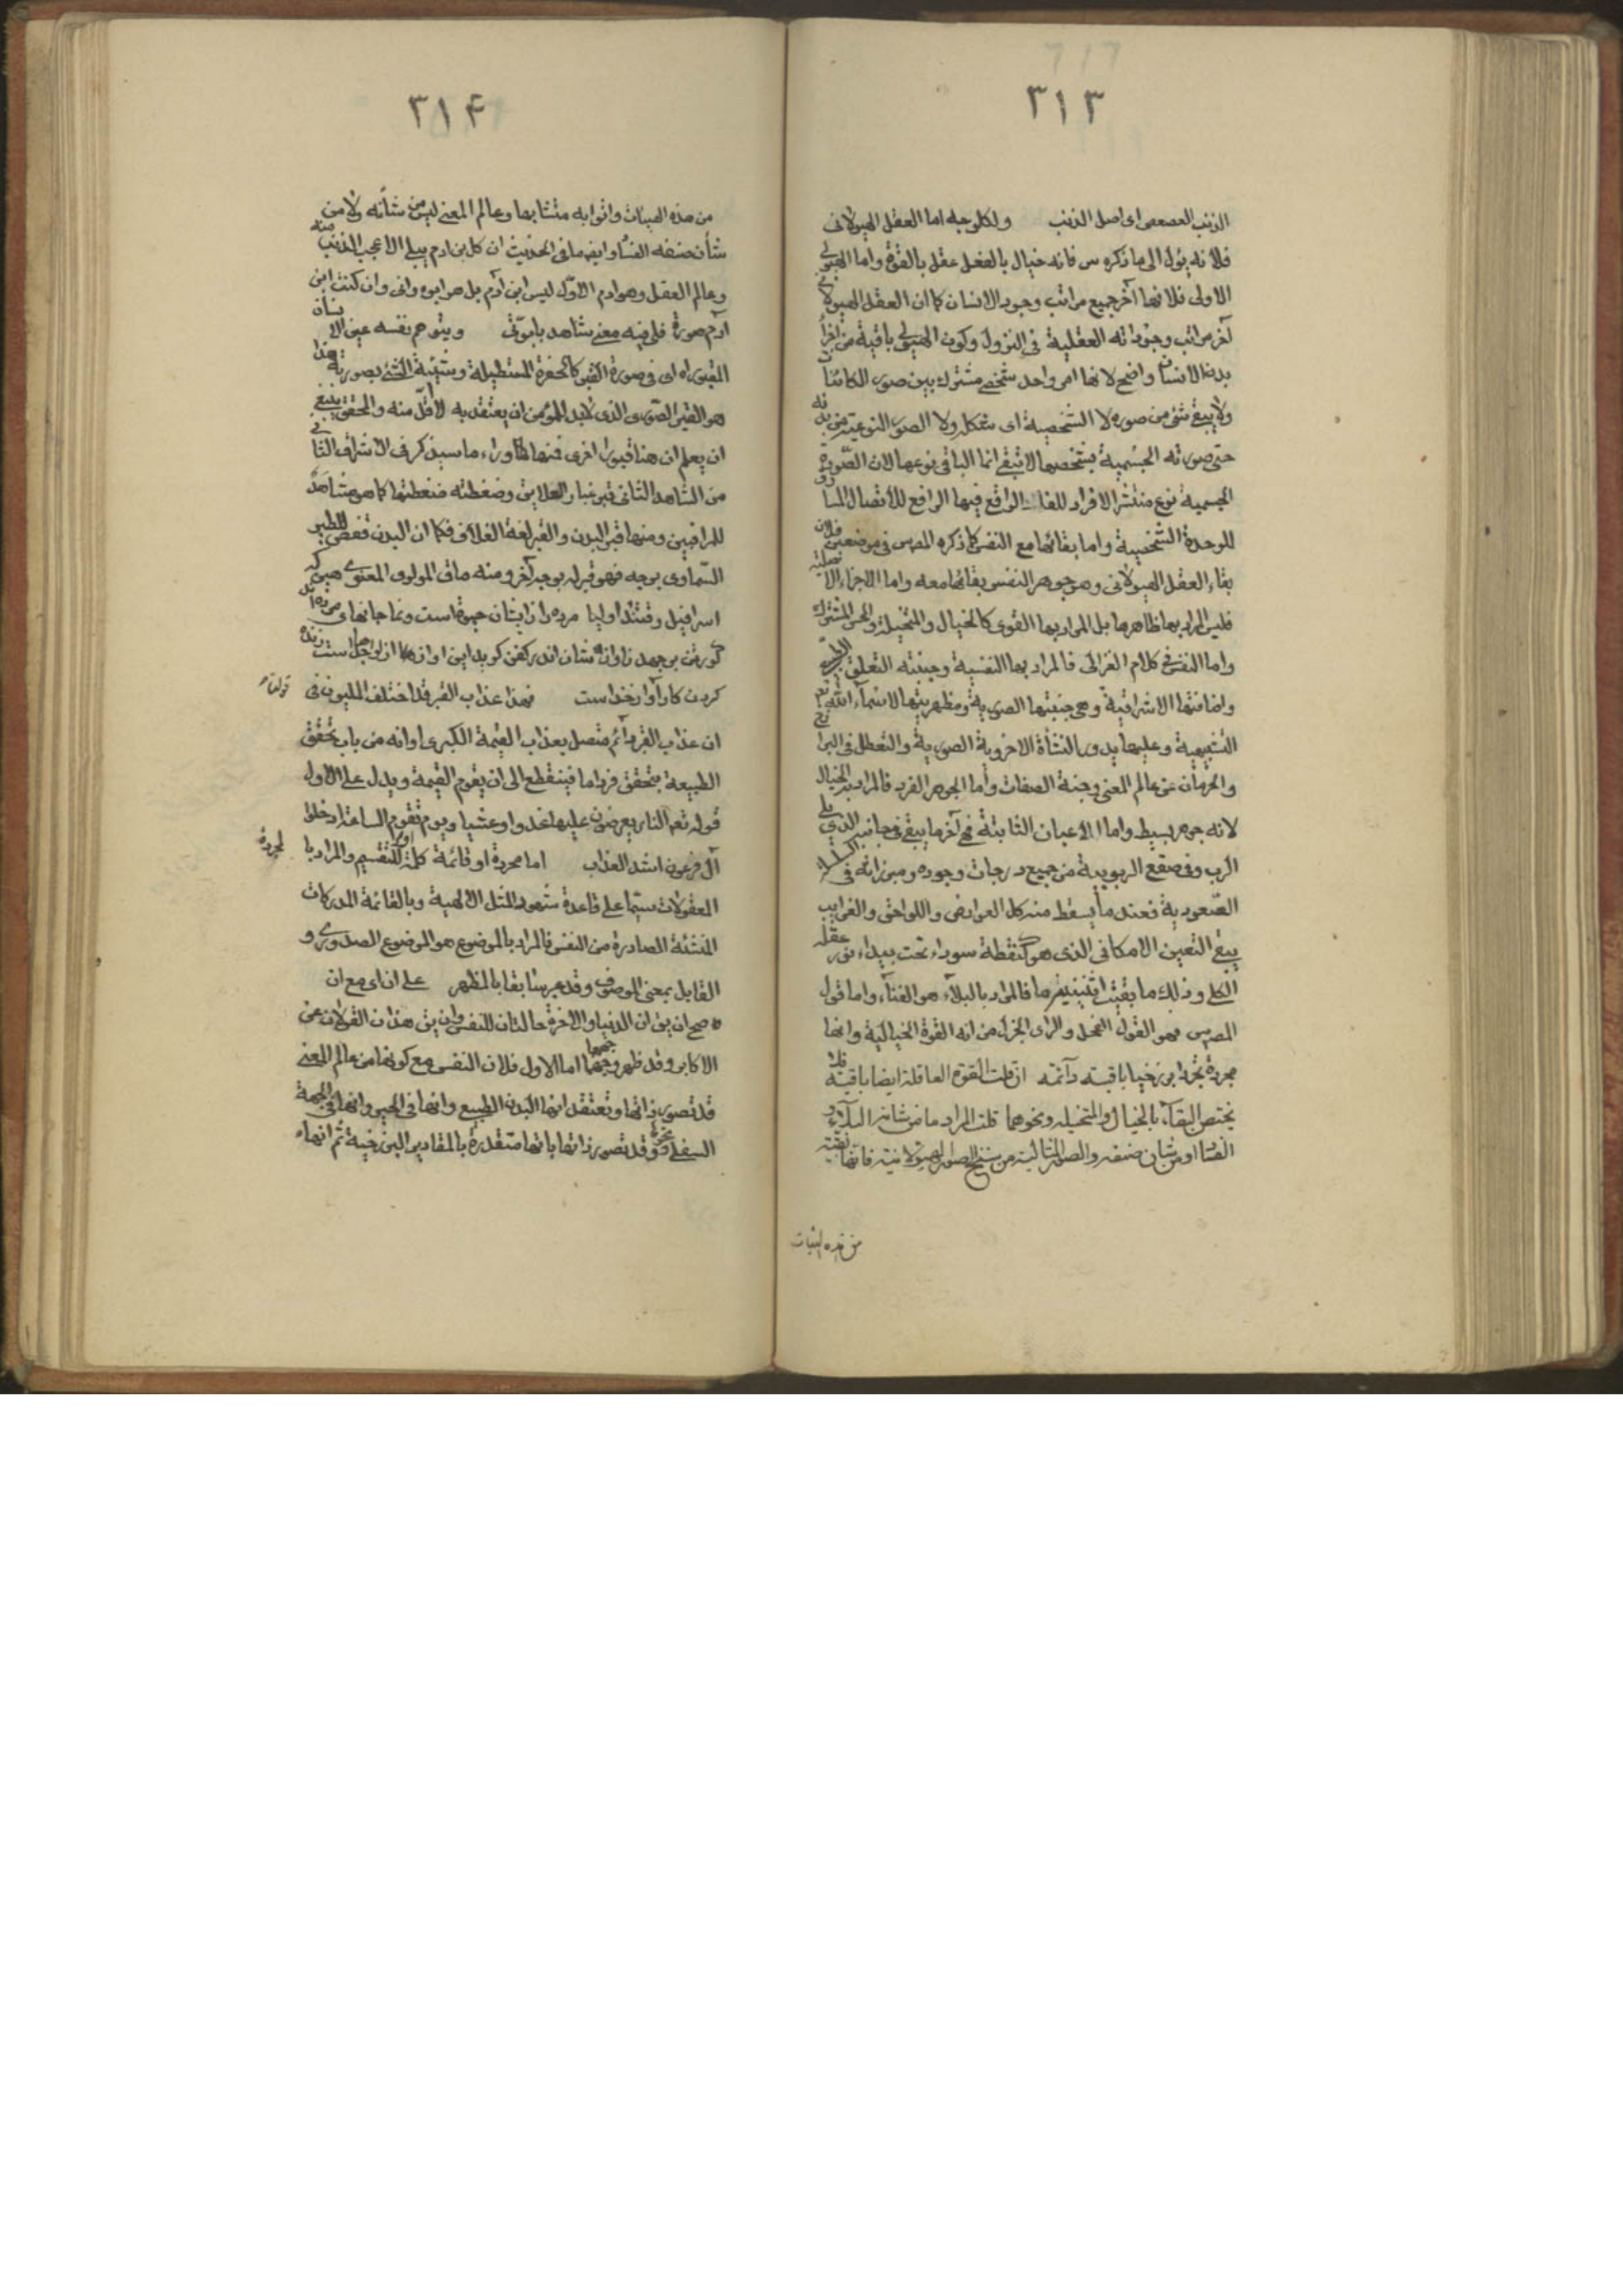 ٣١٣
الذنب العصعص اى اصل الذنب ولكل وجه اما العقل الهيولانى
فلانه يؤل الى ما ذكره س فانه خيال بالفعل عقل بالقوة واما الهيولى
الاولى فلانها آخر جميع مراتب وجود الانسان كما ان العقل الهيولانى
آخر مراتب وجوداته العقلية فى النزول وكون الهيولى باقية من اجزاء
بدن الانسان واضح لانها امر واحد شخصى مشترك بين صور الكائنات
ولا يبقى شئ من صوره لا الشخصية اى شكله ولا الصور النوعية من بدنه
حتى صورته الجسمية بشخصها لا تبقى انما الباقى نوعها لان الصورة
الجسمية نوع منتشر الافراد الواقع فيها الرافع للاتصال المساوق
للوحدة الشخصية واما بقائها مع النفس كما ذكره المص س فى موضعين فلان
بقاء العقل الهيولانى وهو جوهر النفس بقائها معه واما الاجزاء الاصلية
فليس المراد بها ظاهرها بل المراد بها القوى كالخيال والمتخيلة والحس المشترك
واما النفس فى كلام الغزالى فالمراد بها النفسية وحيثية التعلق
واضافتها الاشراقية وهى حيثيتها الصورية ومظهريتها لاسماء الله تعالى
التشبيهية وعليها يدور النشأة الاخروية الصورية والتعطل فى البرازخ
والحرمان عن عالم المعنى وجنة الصفات واما الجوهر الفرد فالمراد به الخيال
لانه جوهر بسيط واما الاعيان الثابتة فهى آخر ما يبقى فى جانب الذى يلى
الرب وفى صقع الربوبية من جميع درجات وجوده وميزانه فى
الصعودية فعند ما يسقط منه كل العوارض واللواحق والغرايب
يبقى التعين الامكانى الذى هو كنقطة سوداء تحت بيداء نور عقله
الكلى وذلك ما بقيت اثنينية ما فالمراد بالبلاء هو الفناء واما قول
المص س فهو القول الفحل والراى الجزل من انه القوة الخيالية وانها
مجردة تجردا برزخيا باقية دآئمة ان قلت القوة العاقلة ايضا باقية فلا
يختص البقاء بالخيال والمتخيلة ونحوهما قلت المراد ما من شانه البلاء و
الفناء او من شان صنفه والصور المثالية من سنخ الصور الهيولانية فانها
من هذه الهيئات
٣١۴
من هذه الهيئات واترابه متشابها وعالم المعنى ليس من شأنه ولا من
شأن صنفه الفناء وايضا ما فى الحديث ان كل بن ادم يبلى الا عجب الذنب منه
وعالم العقل وهو ادم الاول ليس ابن آدم بل هو ابوه وانى وان كنت ابن
آدم صورة فلى فيه معنى شاهد بابوتى ويتوهم نفسه عين الانسان
المقبور اه اى فى صورة القبر كالحفرة المستطيلة وشيئية الشئ بصورته هذا
هو القبر الصورى الذى لابد للمؤمن ان يعتقد به لا اقل منه والمحقق ينبغى
ان يعلم ان هنا قبورا اخرى فمنها ما وراء ما سيذكر فى الاشراق الثانى
من الشاهد الثانى قبر غبار العلايق وضغطته ضغطتها كما هو مشاهد
للمراقبين ومنها قبر البدن والقبر لغة الغلاف فكما ان البدن قفص للطير
السماوى بوجه فهو قبر له بوجه آخر ومنه ما قال المولوى المعنوى هين كه
اسرافيل وقتند اوليا مرده را زايشان حيوة است ونما جانهاى مرده
كورتن برجهد زاوازشان اندر كفن كويد اين اواز ز اوازها جداست زنده
كردن كار آواز خداست فهذا عذاب القبر قد اختلف المليون فى قوله
ان عذاب القبر دآئم متصل بعذاب القيمة الكبرى او انه من باب تحقق
الطبيعة بتحقق فرد ما فينقطع الى ان يقوم القيمة ويدل على الاول
قوله تعه النار يعرضون عليها غدوا وعشيا ويوم تقوم الساعة ادخلوا
آل فرعون اشد العذاب اما مجردة او قائمة كلمة او للتقسيم والمراد بالمجردة
المعقولات سيما على قاعدة شهود المثل الالهية وبالقائمة المدركات
المنشئة الصادرة من النفس فالمراد بالموضوع هو الموضوع الصدورى و
القابل بمعنى الموصوف وقد عبر سابقا بالمظهر على ان اى مع ان
ه صح ان يق ان الدنيا والاخرة حالتان للنفس وان يق هذان القولان عن
الاكابر وقد ظهر وجههما اما الاول فلان النفس مع كونها من عالم المعنى
قد تصور ذاتها وتعتقد انها البدن الطبيعى وانها فى الحيز وانها فى الجهة
السفلى وقد تصور ذاتها بانها متقدرة بالمقادير البرزخية ثم انها